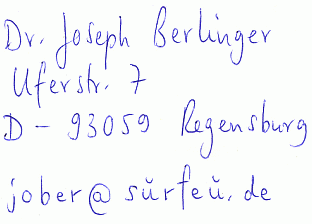 Dr. Joseph Berlinger
Uferstr. 7
D - 93059 Regensburg
jober@sŭrfeŭ.de